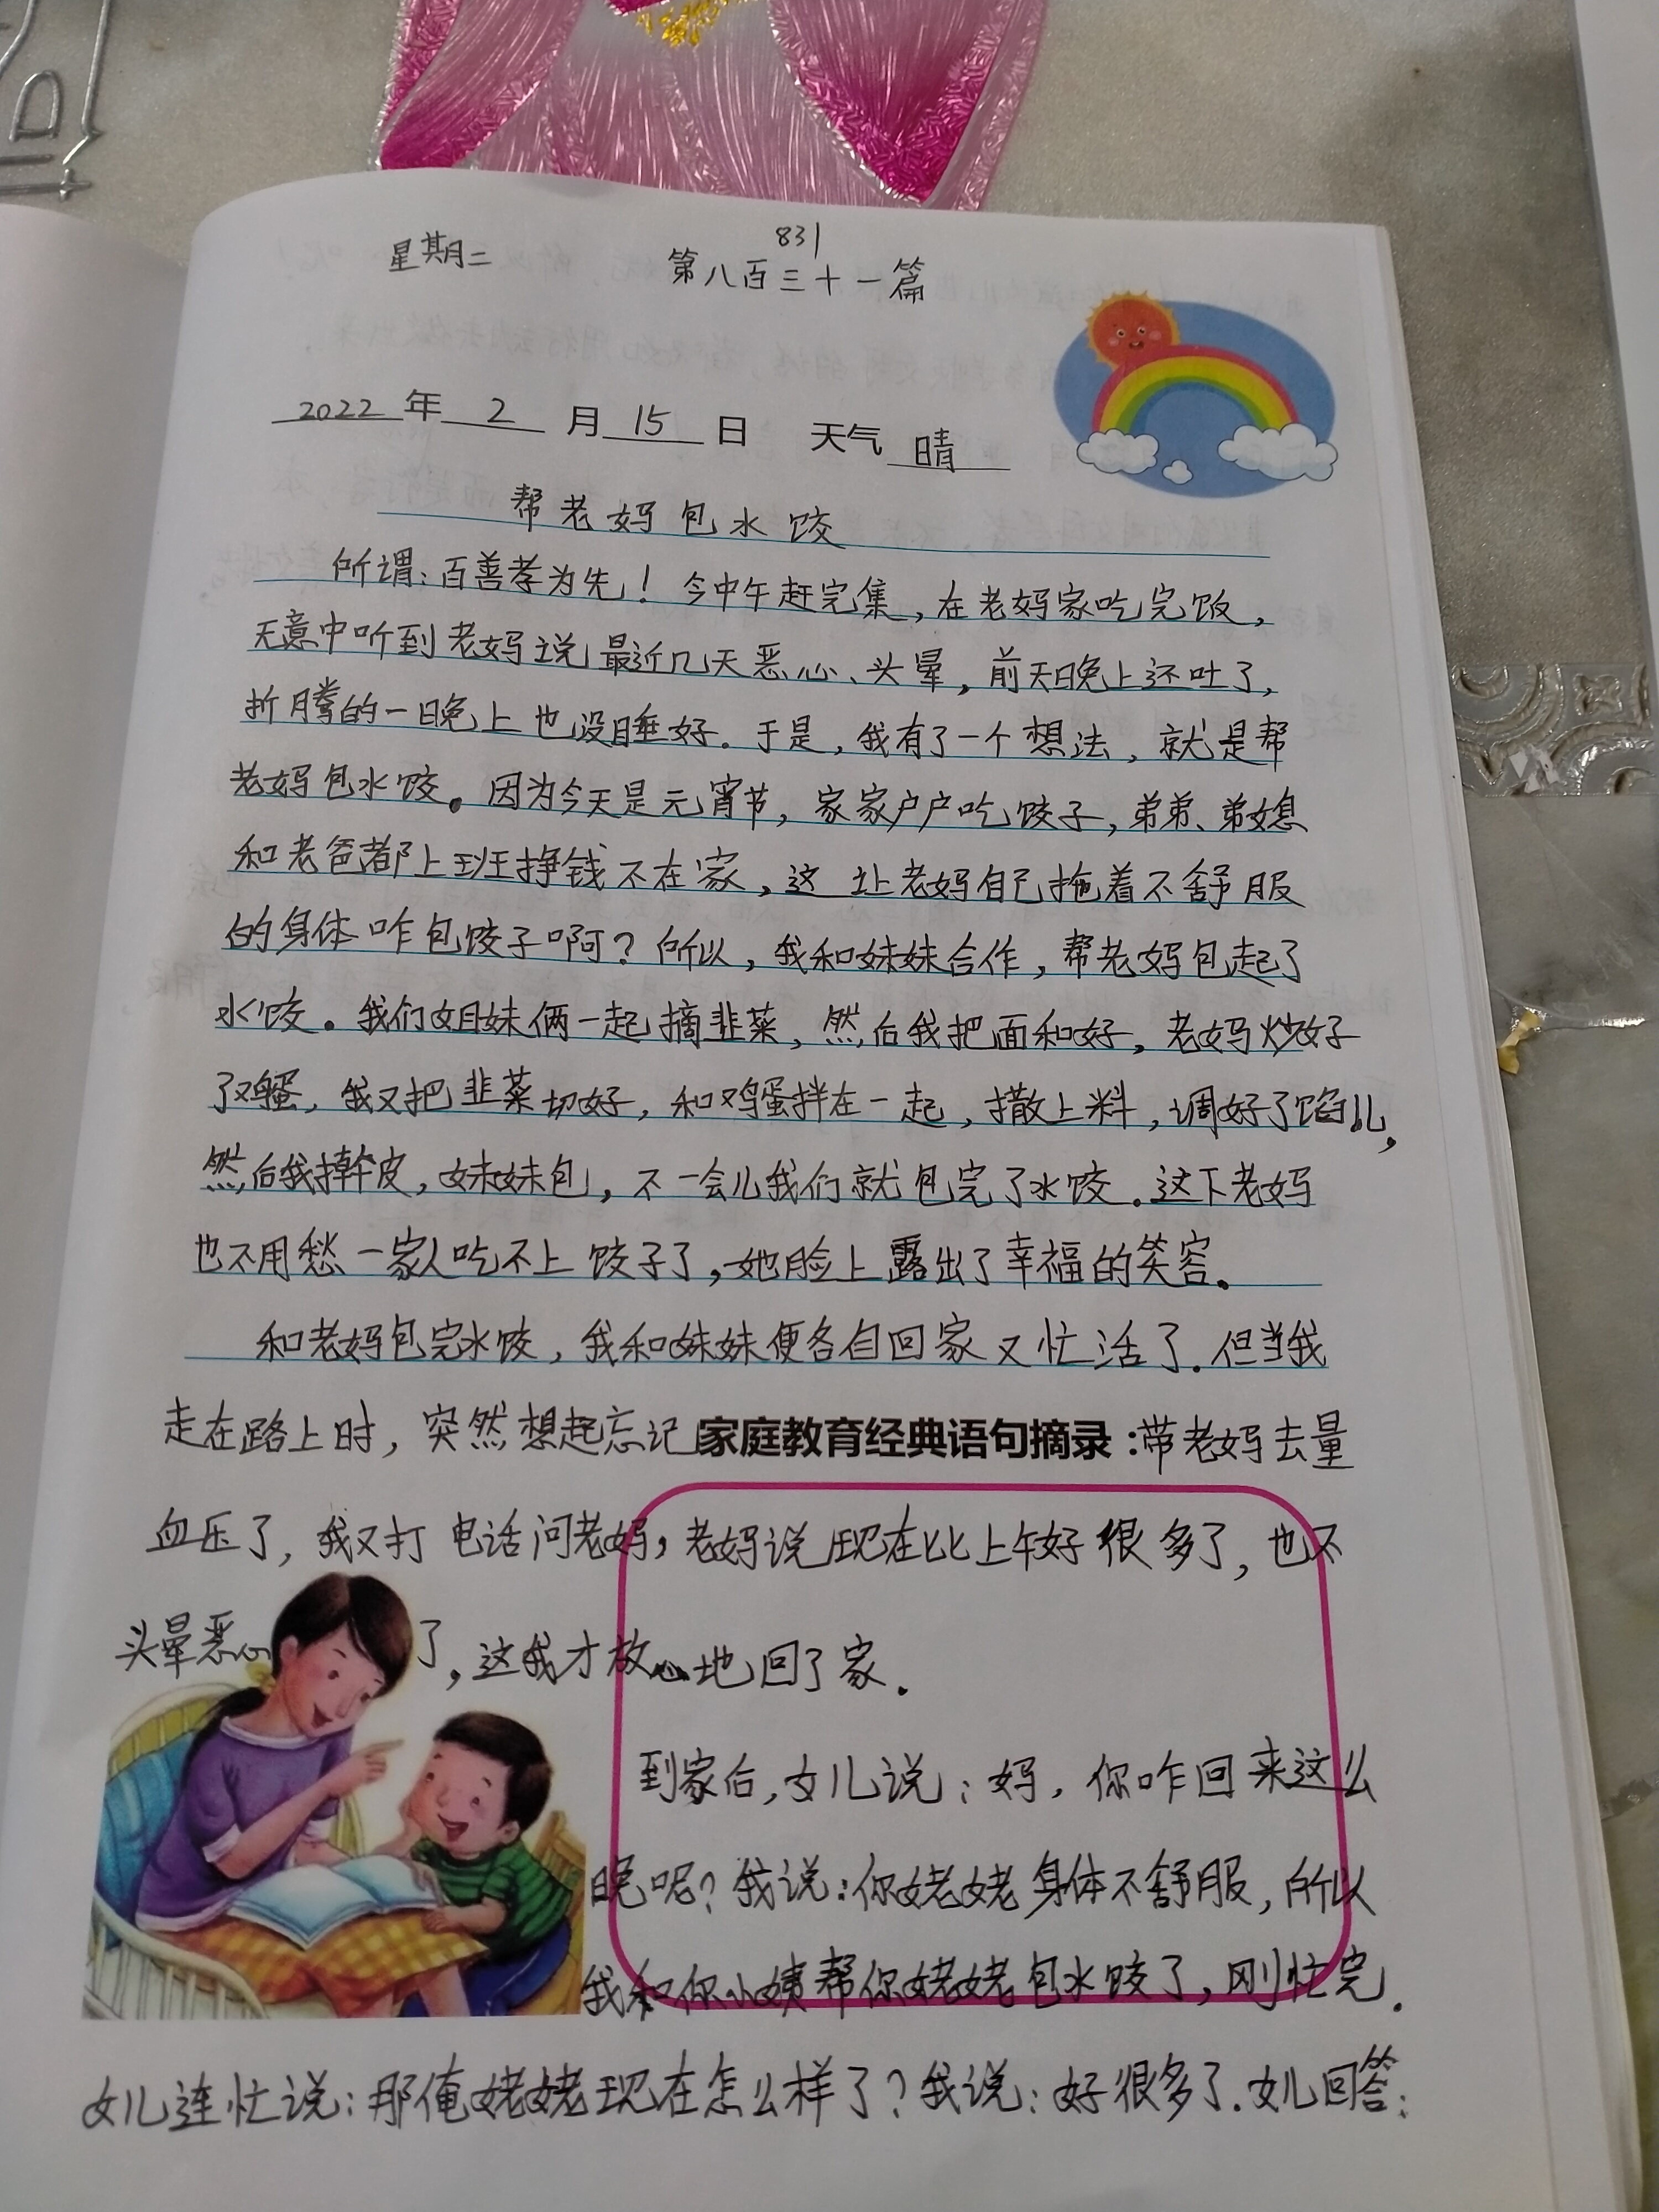 831
星期二 第八百三十一篇
2022年2月15日 天气晴
帮老妈包水饺
所谓:百善孝为先!今中午赶完集,在老妈家吃完饭,
无意中听到老妈说最近几天恶心、头晕,前天晚上还吐了,
折腾的一晚上也没睡好.于是,我有了一个想法,就是帮
老妈包水饺。因为今天是元宵节,家家户户吃饺子,弟弟、弟媳
和老爸都上班挣钱不在家,这让老妈自己拖着不舒服
的身体咋包饺子啊?所以,我和妹妹合作,帮老妈包起了
水饺。我们姐妹俩一起摘韭菜,然后我把面和好,老妈炒好
了鸡蛋,我又把韭菜切好,和鸡蛋拌在一起,撒上料,调好了馅儿,
然后我擀皮,妹妹包,不一会儿我们就包完了水饺.这下老妈
也不用愁一家人吃不上饺子了,她脸上露出了幸福的笑容。
和老妈包完水饺,我和妹妹便各自回家又忙活了.但当我
走在路上时,突然想起忘记家庭教育经典语句摘录:带老妈去量
血压了,我又打电话问老妈,老妈说现在比上午好很多了,也不
头晕恶心了,这我才放心地回了家.
到家后,女儿说:妈,你咋回来这么
晚呢?我说:你姥姥身体不舒服,所以
我和你小姨帮你姥姥包水饺了,刚忙完.
女儿连忙说:那俺姥姥现在怎么样了?我说:好很多了.女儿回答: